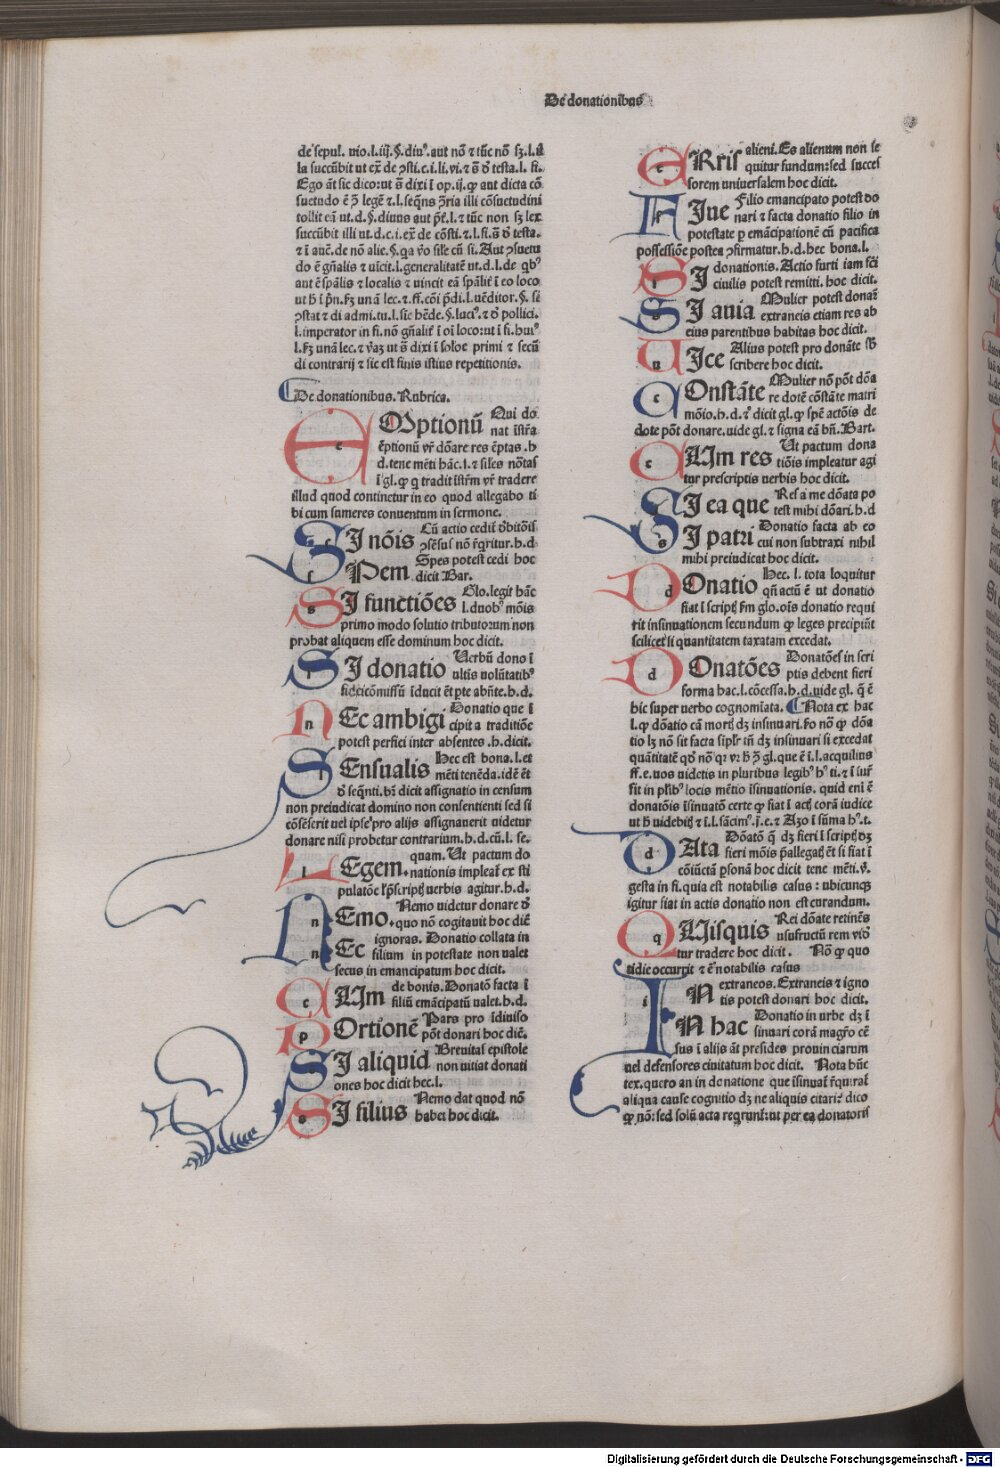 De donationibus
de sepul. uio.l.iij.§.diuꝰ. aut nō ⁊ tūc nō sꝫ.l.il
la succūbit ut ex̄ de ꝯsti.c.i.li.vi.⁊ s̄ ð testa.l. fi.
Ego āt sic dico: ut s̄ dixi ī op.ij. ꝙ aut dicta cō
suetudo ē ꝯ̄ legē ⁊.l.seq̄ns ꝯ̄ria illi cōsuetudini
tollit eā ut.d.§.diuus aut p̄t.l.⁊ tūc non sꝫ lex
succūbit illi ut.d.c.i.ex̄ de cōsti.⁊.l.fi.s̄ ð testa.
⁊ ī auc̄.de nō alie.§.qa v̄o sile cū si. Aut ꝯsuetu
do ē gn̄alis ⁊ uīcit.l.generalitatē ut.d.l.de qbꝰ
aut ē spālis ⁊ localis ⁊ uincit eā spālit̄ ī eo loco
ut h̄ ī p̄n.sꝫ unā lec.⁊ ff.cōi p̄di.l.uēditor.§. si
ꝯstat ⁊ di admi.tu.l.sic hēde.§.luciꝰ.⁊ ð pollici.
l.imperator in fi.nō gn̄alit̄ ī oī loco: ut ī fi.huiꝰ
l.sꝫ unā lec.⁊ v̄aꝫ ut s̄ dixi ī soloe primi ⁊ secū
di contrarij ⁊ sic est finis istius repetitionis.
De donationibus. Rubrica.
e
MPtionū Qui do
nat īstr̄a
ēptionū vr̄ dōare res ēptas .h
d.tene mēti hāc.l.⁊ siles nōtas
ī gl.ꝙ q tradit īstrm̄ vr̄ tradere
illud quod continetur in eo quod allegabo ti
bi cum sumeres conuentum in sermone.
SI nōis Cū actio cedit̄ ðbitōis
ꝯsēsus nō rq̄ritur.h.d
SPem Spes potest cedi hoc
dicit Bar.
SI functiōes Glo. legit hāc
l.duobꝰ mōis
primo modo solutio tributorum non
probat aliquem esse dominum hoc dicit.
SI donatio Verbū dono ī
ultis volūtatibꝰ
fideicōmissū īducit ēt ꝑte abn̄te.h.d.
NEc ambigi Donatio que ī
cipit a traditiōe
potest perfici inter absentes .h.dicit.
SEnsualis Hec est bona.l.et
mēti tenēda. idē ēt
ð seq̄nti. hā dicit assignatio in censum
non preiudicat domino non consentienti sed si
cōsēserit uel ipse pro alijs assignauerit uidetur
donare nisi probetur contrarium.h.d.cū.l. se.
LEgem. quam. Ut pactum do
nationis impleat̄ ex sti
pulatōe l' p̄scriptꝭ uerbis agitur.h.d.
NEmo. Nemo uidetur donare ð
quo nō cogitauit hoc dic̄
NEc ignoras. Donatio collata in
filium in potestate non ualet
secus in emancipatum hoc dicit.
CUm de bonis. Donatō facta ī
filiū emācipatū ualet.h.d.
POrtionē Pars pro īdiuiso
pōt donari hoc dic̄.
SI aliquid Breuitas epistole
non uitiat donati
ones hoc dicit hec.l.
SI filius Nemo dat quod nō
habet hoc dicit.
ERris alieni. Es alienum non se
quitur fundum: sed succes
sorem uniuersalem hoc dicit.
SIue Filio emancipato potest do
nari ⁊ facta donatio filio in
potestate ꝑ emācipationē cū pacifica
possessiōe postea ꝯfirmatur.h.d.hec bona.l.
SI donationis. Actio furti iam sc̄i
ciuilis potest remitti. hoc dicit.
SI auia Mulier potest donar̄
extraneis etiam res ab
eius parentibus habitas hoc dicit.
UIce Alius potest pro donāte sb̄
scribere hoc dicit.
COnstāte Mulier nō pōt dōa
re dotē cōstāte matri
mōio.h.d.⁊ dicit gl.ꝙ spē actōis de
dote pōt donare.uide gl.⁊ signa eā bn̄. Bart.
CUm res Ut pactum dona
tiōis impleatur agi
tur prescriptis uerbis hoc dicit.
SI ea que Res a me dōata po
test mihi dōari.h.d
SI patri Donatio facta ab eo
cui non subtraxi nihil
mihi preiudicat hoc dicit.
DOnatio Hec.l. tota loquitur
qn̄ actū ē ut donatio
fiat ī scriptꝭ sm̄ glo.oīs donatio requi
rit insinuationem secundum ꝙ leges precipiūt
scilicet si quantitatem taxatam excedat.
DOnatōes Donatōes in scri
ptis debent fieri
forma hac.l.cōcessa.h.d.uide gl. q̄ ē
hic super uerbo cognomīata. Nota ex hac
l.ꝙ dōatio cā mortꝭ dꝫ insinuari. sꝫo nō ꝙ dōa
tio lꝫ nō sit facta simplr̄ tn̄ dꝫ insinuari si excedat
quātitatē qð nō qr vr̄ h̄ ꝯ̄ gl.que ē ī.l.acquilius
ff.e.uos uidetis in pluribus legibꝰ hꝰ ti.⁊ ī iur̄
sit in plibꝰ locis mētio īsinuationis. quid enī ē
donatōis īsinuatō certe ꝙ fiat ī actꝭ corā iudice
ut h̄ uidebitꝭ ⁊ ī.l.sācimꝰ.j̄.e.⁊ Azo ī sūma hꝰ.t.
DAta Dōatō q̄ dꝫ fieri ī scriptꝭ dꝫ
fieri mōis p̄allegatꝭ ēt si fiat ī
cōiūctā ꝑsonā hoc dicit tene mēti.v̄.
gesta in fi.quia est notabilis casus: ubicunqꝫ
igitur fiat in actis donatio non est curandum.
QUisquis Rei dōate retinēs
usufructū rem vid̄
tur tradere hoc dicit. Nō ꝙ quo
tidie occurrit ⁊ ē notabilis casus
IN extraneos. Extraneis ⁊ igno
tis potest donari hoc dicit.
IN hac Donatio in urbe dꝫ ī
sinuari corā magrō cē
sus ī alijs āt presides prouinciarum
uel defensores ciuitatum hoc dicit. Nota hūc
tex.quero an in donatione que īsinuat̄ rq̄rat̄
aliqua cause cognitio dꝫ ne aliquis citari: dico
ꝙ nō: sed solū acta reqrunt̄ ut per ea donatoris
Digitalisierung gefördert durch die Deutsche Forschungsgemeinschaft - DFG